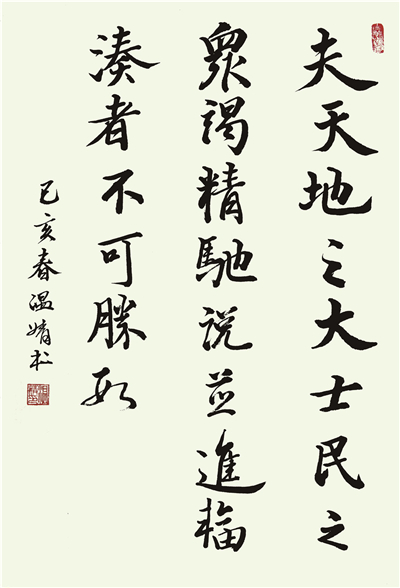 夫天地之大士民之
眾竭精馳説並進輻
湊者不可勝數
己亥春温婧松